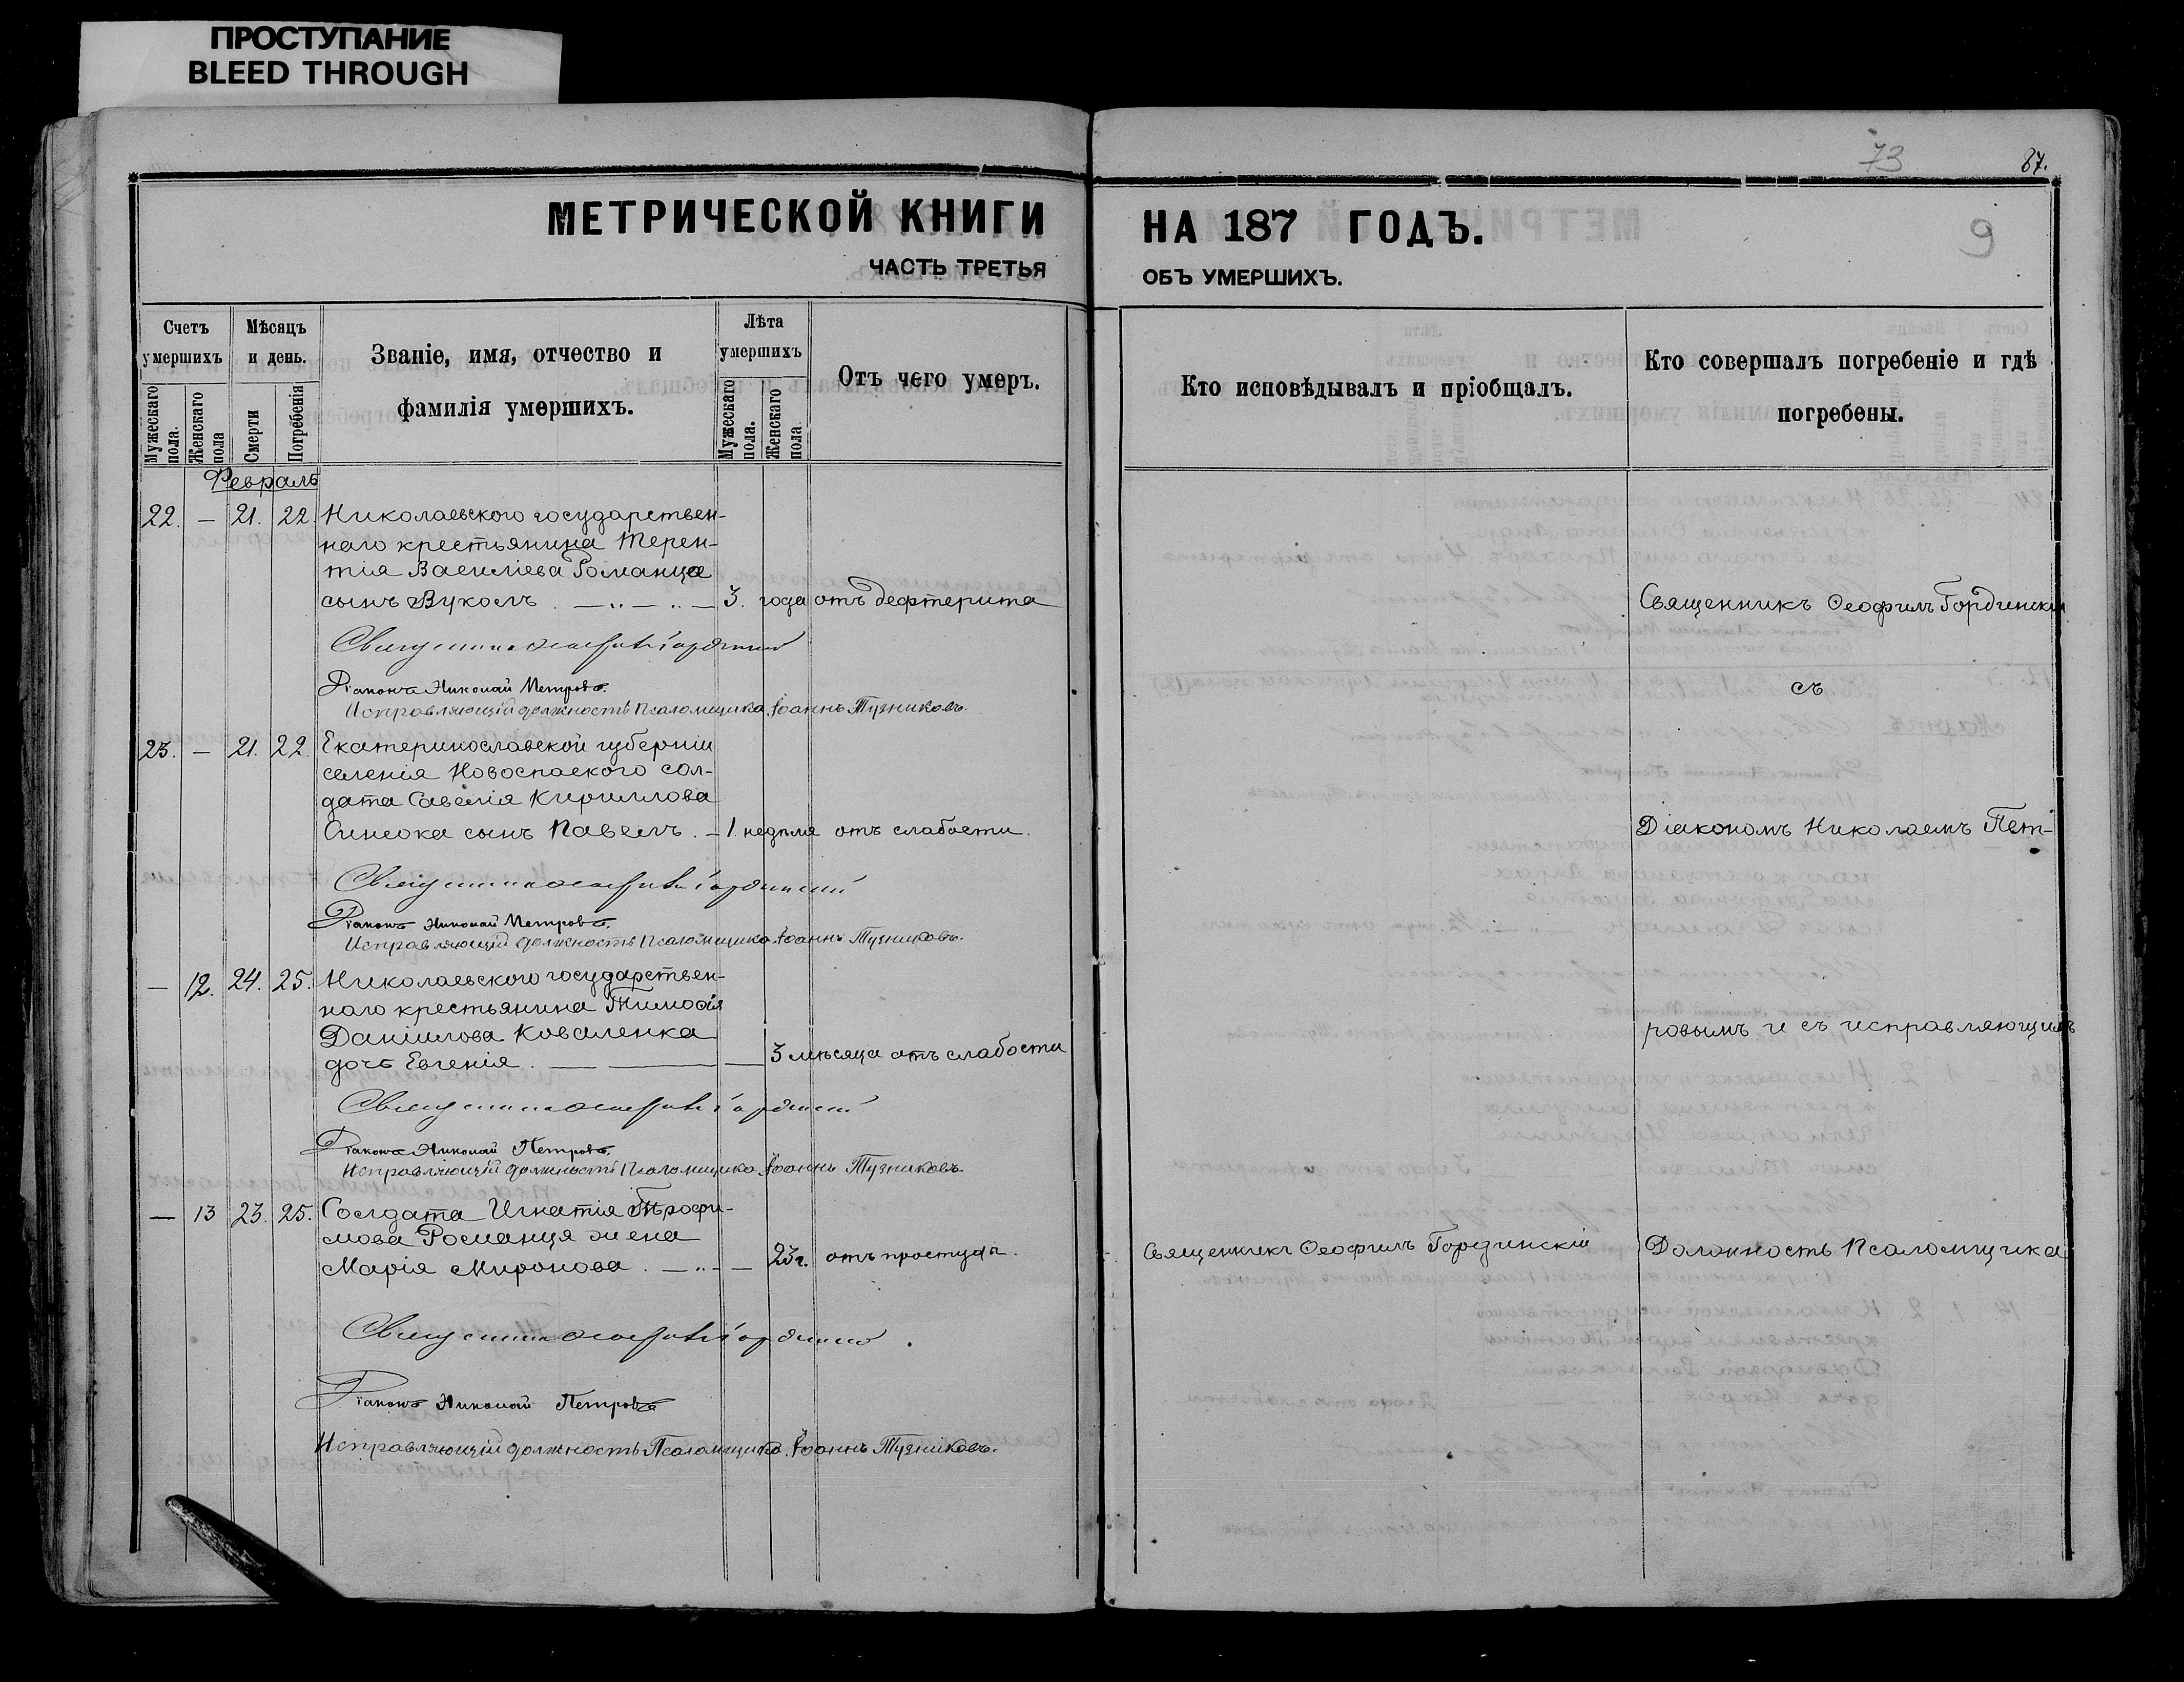 ПРОСТУПАНИЕ
BLEED THROUGH
73
87.
9
МЕТРИЧЕСКОЙ КНИГИ НА 187 ГОДЪ.
ЧАСТЬ ТРЕТЬЯ ОБЪ УМЕРШИХЪ.
Счетъ умершихъ
Мужескаго пола.
Женскаго пола
Мѣсяцъ и день.
Смерти
Погребенія
Званіе, имя, отчество и
фамилія умершихъ.
Лѣта умершихъ
Мужескаго пола.
Женскаго пола
Отъ чего умеръ.
Кто исповѣдывалъ и пріобщалъ.
Кто совершалъ погребеніе и гдѣ
погребены.
Февраль
22. — 21. 22. Николаевского государствен-
наго крестьянина Терен-
тія Василіева Романца
сынъ Вуколъ . — „ — „ — 3. года отъ дефтерита
Священникъ Ѳеофилъ Гординскій
Священникъ Ѳеофилъ Гординскій
Діаконъ Николай Петровъ.
Исправляющій должность Псаломщика Іоаннъ Тузниковъ.
съ
23. — 21. 22. Екатеринославской губерніи
селенія Новоспаского сол-
дата Савелія Кириллова
Синеока сынъ Павелъ . — 1. недѣля отъ слабости.
Діакономъ Николаемъ Пет-
Священникъ Ѳеофилъ Гординскій
Діаконъ Николай Петровъ.
Исправляющій должность Псаломщика Іоаннъ Тузниковъ.
— 12. 24. 25. Николаевского государствен-
наго крестьянина Тимоѳія
Даніилова Коваленка
дочь Евгенія . — — — 3 мѣсяца отъ слабости
ровымъ и съ исправляющимъ
Священникъ Ѳеофилъ Гординскій
Діаконъ Николай Петровъ.
Исправляющій должность Псаломщика Іоаннъ Тузниковъ.
— 13 23. 25. Солдата Игнатія Трофи-
мова Романця жена
Марія Миронова . — „ — — 23 г. отъ простуды.
Священникъ Ѳеофилъ Гординскій
Должность Псаломщика
Священникъ Ѳеофилъ Гординскій
Діаконъ Николай Петровъ
Исправляющій должность Псаломщика Іоаннъ Тузниковъ.